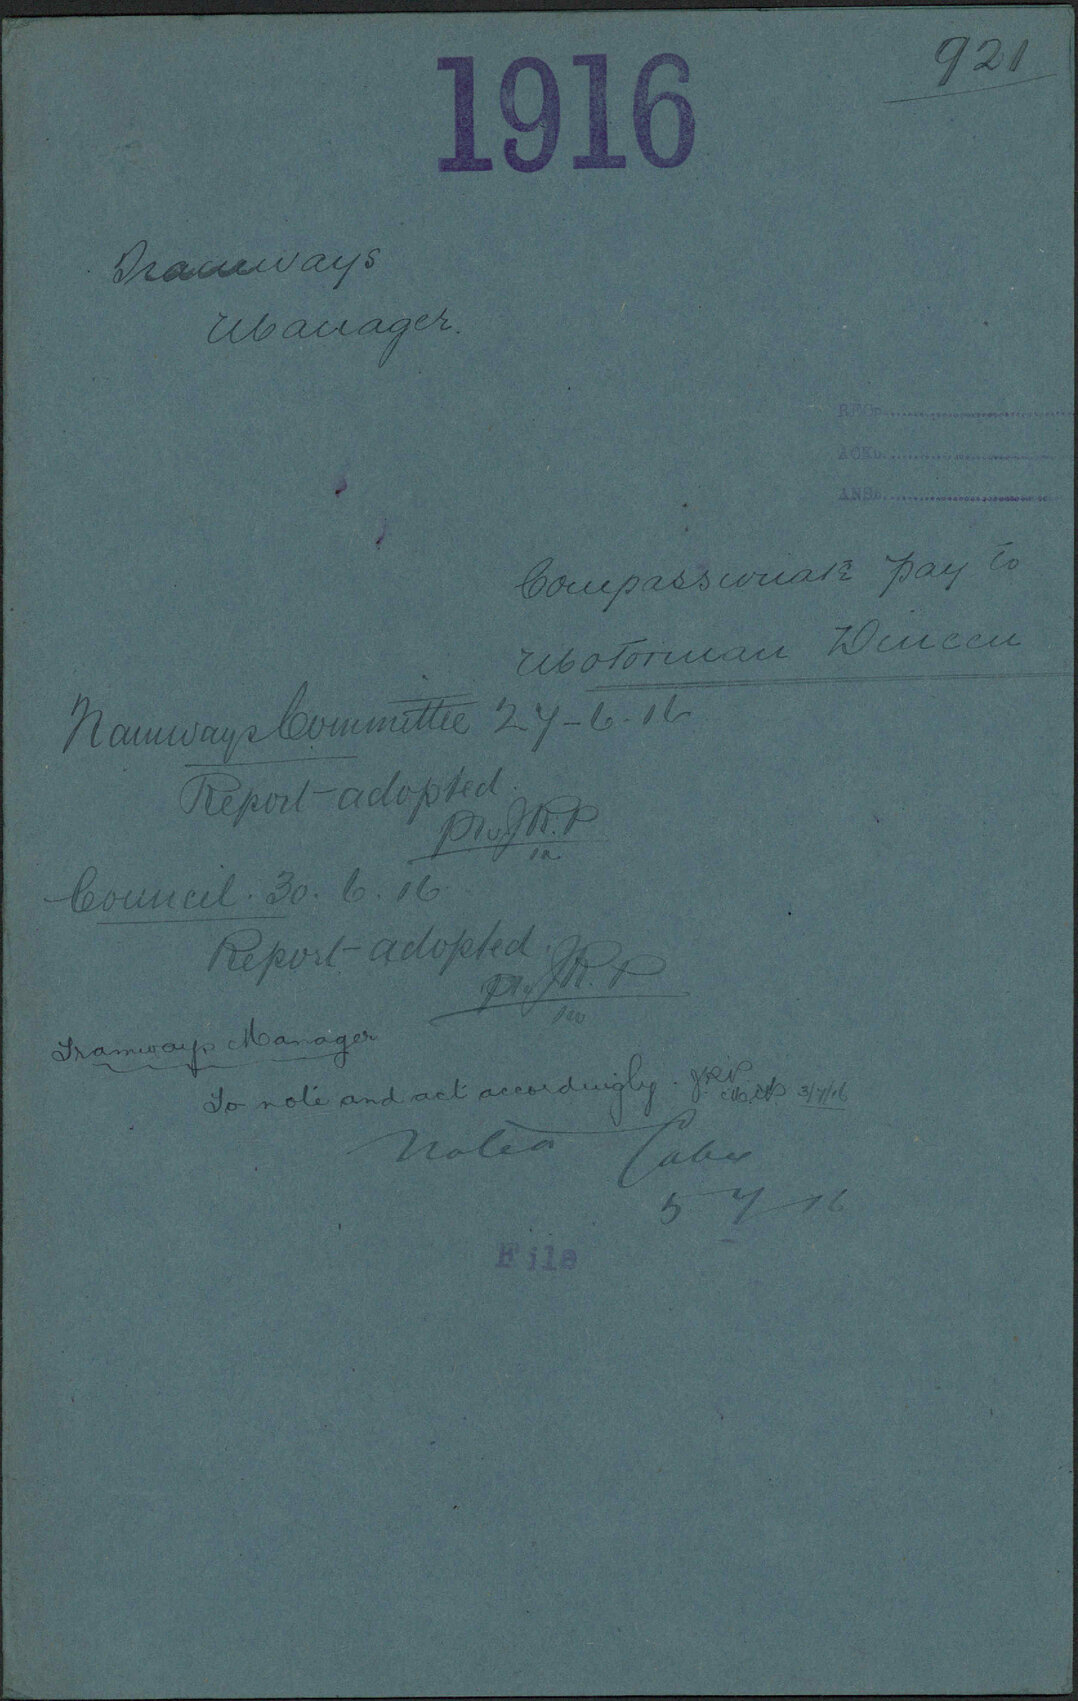 1916
921
Tramways
Manager.
RECD.
ACKD.
ANSD.
Compassionate pay to
Motorman Dineen
Tramways Committee 27-6-16
Report adopted.
J.R.P
Council. 30.6.16
Report adopted.
J.R.P
Tramways Manager
To note and act accordingly. JRP 3/7/16
Noted
5-7-16
File